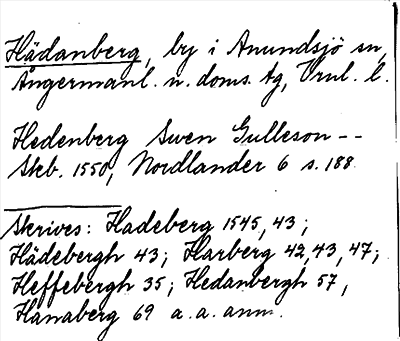 Hädanberg, by i Anundsjö sn,
Ångermanl. n. doms. tg, Vrnl. l.
Hedenberg Swen Gulleson --
Skb. 1550, Nordlander 6 s. 188
Skrives: Hadeberg 1545, 43;
Hädebergh 43; Harberg 42, 43, 47;
Heffebergh 35; Hedanbergh 57,
Hanaberg 69 a. a. anm.